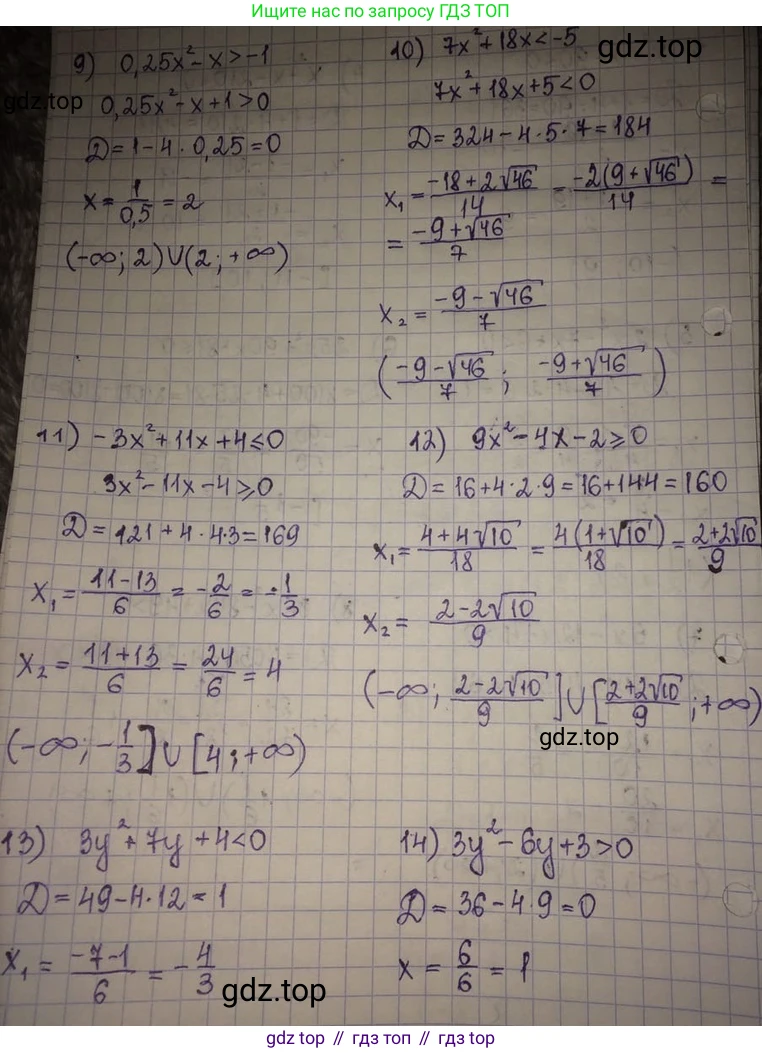 Ищите нас по запросу ГДЗ ТОП
9) 0,25x² - x > -1
0,25x² - x + 1 > 0
D = 1 - 4 · 0,25 = 0
x = 1/0,5 = 2
(-∞; 2) ∪ (2; +∞)
10) 7x² + 18x < -5
7x² + 18x + 5 < 0
D = 324 - 4 · 5 · 7 = 184
x₁ = (-18 + 2√46)/14 = (-2(9 + √46))/14 =
= (-9 + √46)/7
x₂ = (-9 - √46)/7
((-9 - √46)/7 ; (-9 + √46)/7)
11) -3x² + 11x + 4 ≤ 0
3x² - 11x - 4 ≥ 0
D = 121 + 4 · 4 · 3 = 169
x₁ = (11 - 13)/6 = -2/6 = -1/3
x₂ = (11 + 13)/6 = 24/6 = 4
(-∞; -1/3] ∪ [4; +∞)
12) 9x² - 4x - 2 ≥ 0
D = 16 + 4 · 2 · 9 = 16 + 144 = 160
x₁ = (4 + 4√10)/18 = (4(1 + √10))/18 = (2 + 2√10)/9
x₂ = (2 - 2√10)/9
(-∞; (2 - 2√10)/9] ∪ [(2 + 2√10)/9 ; +∞)
13) 3y² + 7y + 4 < 0
D = 49 - 4 · 12 = 1
x₁ = (-7 - 1)/6 = -4/3
14) 3y² - 6y + 3 > 0
D = 36 - 4 · 9 = 0
x = 6/6 = 1
gdz.top
gdz.top
gdz.top
gdz.top
gdz.top
gdz.top // гдз топ // gdz.top